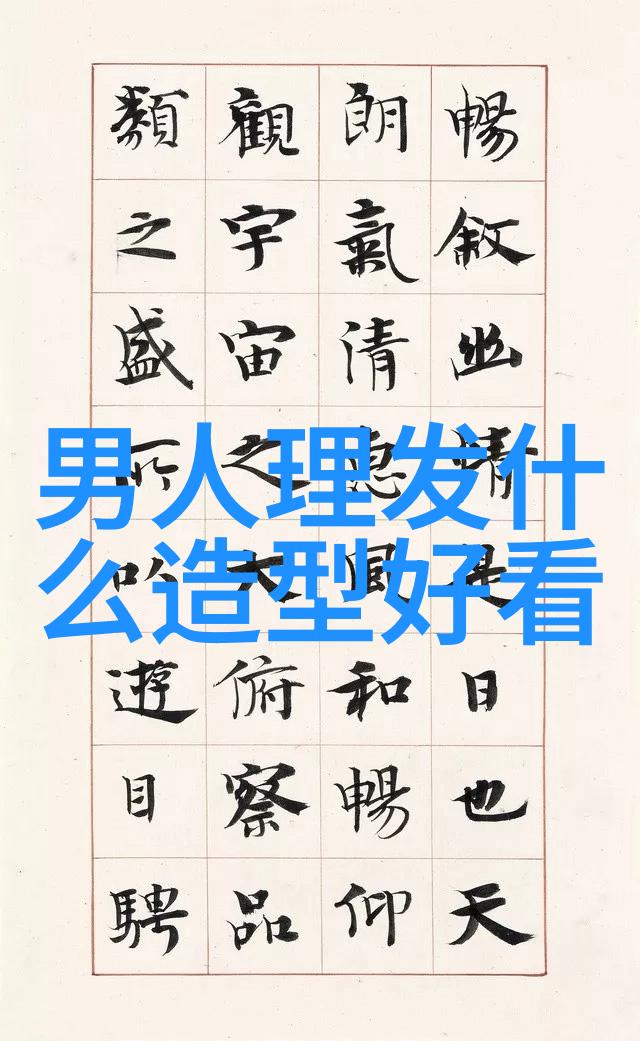 男人理发什
么造型好看
暢敘幽情是日也天
朗氣清惠風和暢仰
觀宇宙之大俯察品
類之盛所以遊目騁